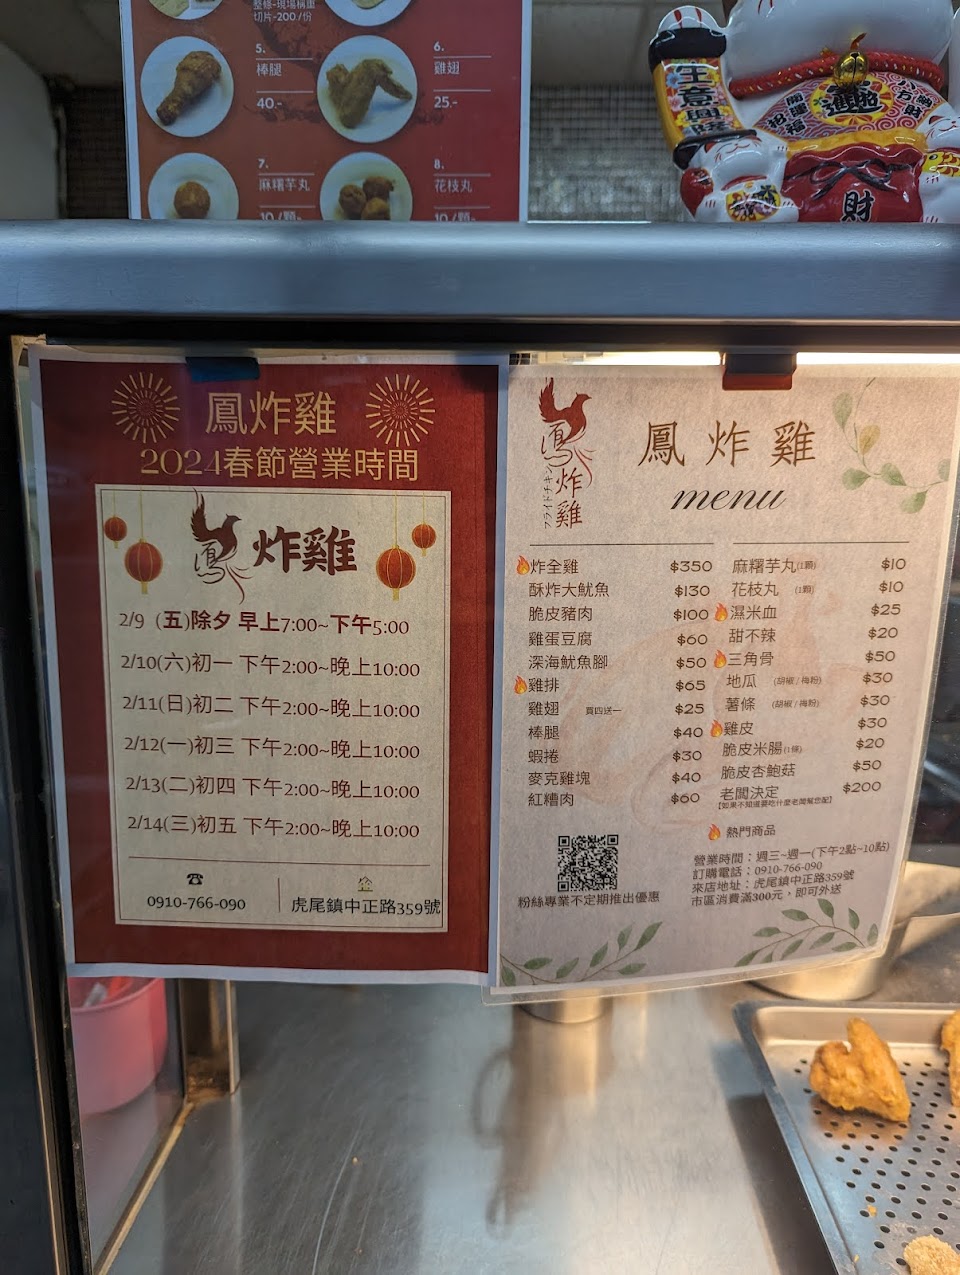 整條-現場稱重
切片-200/份
5.
棒腿
40.-
6.
雞翅
25.-
7.
麻糬芋丸
10/顆-
8.
花枝丸
10/顆-
生意興隆
招財進寶
財
鳳炸雞
2024春節營業時間
鳳炸雞
2/9 (五)除夕 早上7:00~下午5:00
2/10(六)初一 下午2:00~晚上10:00
2/11(日)初二 下午2:00~晚上10:00
2/12(一)初三 下午2:00~晚上10:00
2/13(二)初四 下午2:00~晚上10:00
2/14(三)初五 下午2:00~晚上10:00
0910-766-090
虎尾鎮中正路359號
鳳炸雞
フライドチキン
鳳炸雞
menu
炸全雞 $350
酥炸大魷魚 $130
脆皮豬肉 $100
雞蛋豆腐 $60
深海魷魚腳 $50
雞排 $65
雞翅 買四送一 $25
棒腿 $40
蝦捲 $30
麥克雞塊 $40
紅糟肉 $60
麻糬芋丸(1顆) $10
花枝丸 (1顆) $10
濕米血 $25
甜不辣 $20
三角骨 $50
地瓜 (胡椒/梅粉) $30
薯條 (胡椒/梅粉) $30
雞皮 $30
脆皮米腸(1條) $20
脆皮杏鮑菇 $50
老闆決定 $200
【如果不知道要吃什麼老闆幫您配】
熱門商品
粉絲專業不定期推出優惠
營業時間：週三~週一(下午2點~10點)
訂購電話：0910-766-090
來店地址：虎尾鎮中正路359號
市區消費滿300元，即可外送